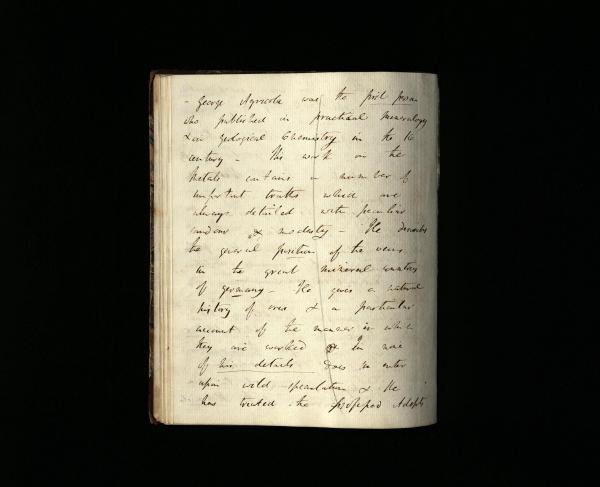 - George Agricola was the first person
who published in practical mineralogy
& on geological Chemistry in the 16
century - His work on the
Metals contains a number of
important truths which are
always detailed with peculiar
candour & modesty - He describes
the general position of the veins
in the great mineral countries
of Germany - He gives a natural
history of ores & a particular
account of the manner in which
they are worked & In none
of his details does he enter
upon wild speculation & He
has treated the professed Adepts